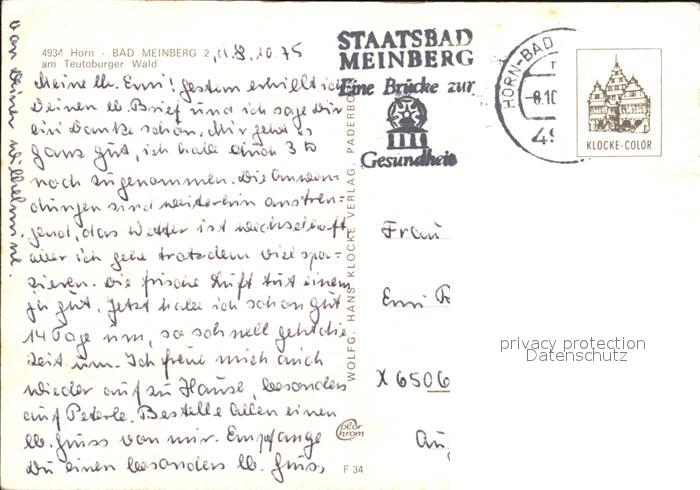 4934 Horn - BAD MEINBERG 2, d. 8.10.75
am Teutoburger Wald
Meine lb. Emi! Gestern erhielt ich
Deinen lb Brief und ich sage Dir
ein Danke schön. Mir geht es
ganz gut, ich habe auch 3 tb
noch zugenommen. Die Anwen-
dungen sind weiterhin anstren-
gend, das Wetter ist wechselhaft
aber ich gehe trotzdem viel spa-
zieren. Die frische Luft tut einem
ja gut. Jetzt habe ich schon gut
14 Tage um, so schnell geht die
Zeit um. Ich freue mich auch
wieder auf zu Hause, besonders
auf Peterle. Bestelle Allen einen
lb. Gruss von mir. Empfange
Du einen besonders lb. Gruss,
von Deiner Wilhelmine.
WOLFG. HANS KLOCKE VERLAG, PADERBO
color
chrom
F 34
STAATSBAD
MEINBERG
Eine Brücke zur
Gesundheit
HORN-BAD
-8.10
49
KLOCKE-COLOR
Frau
Emi
X 6506
privacy protection
Datenschutz